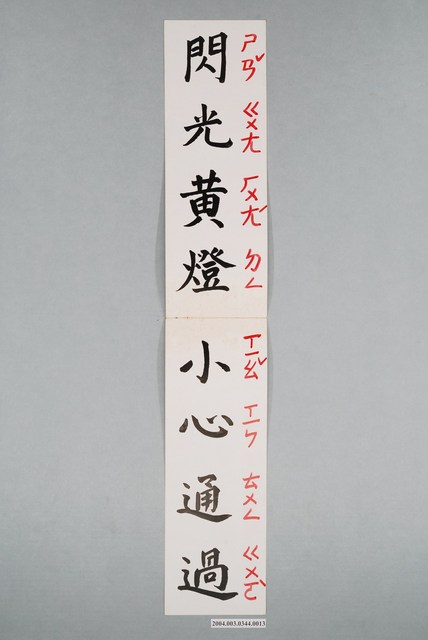 閃光黃燈小心通過
ㄕㄢˇ ㄍㄨㄤ ㄏㄨㄤˊ ㄉㄥ ㄒㄧㄠˇ ㄒㄧㄣ ㄊㄨㄥ ㄍㄨㄛˋ
2004.003.0344.0013